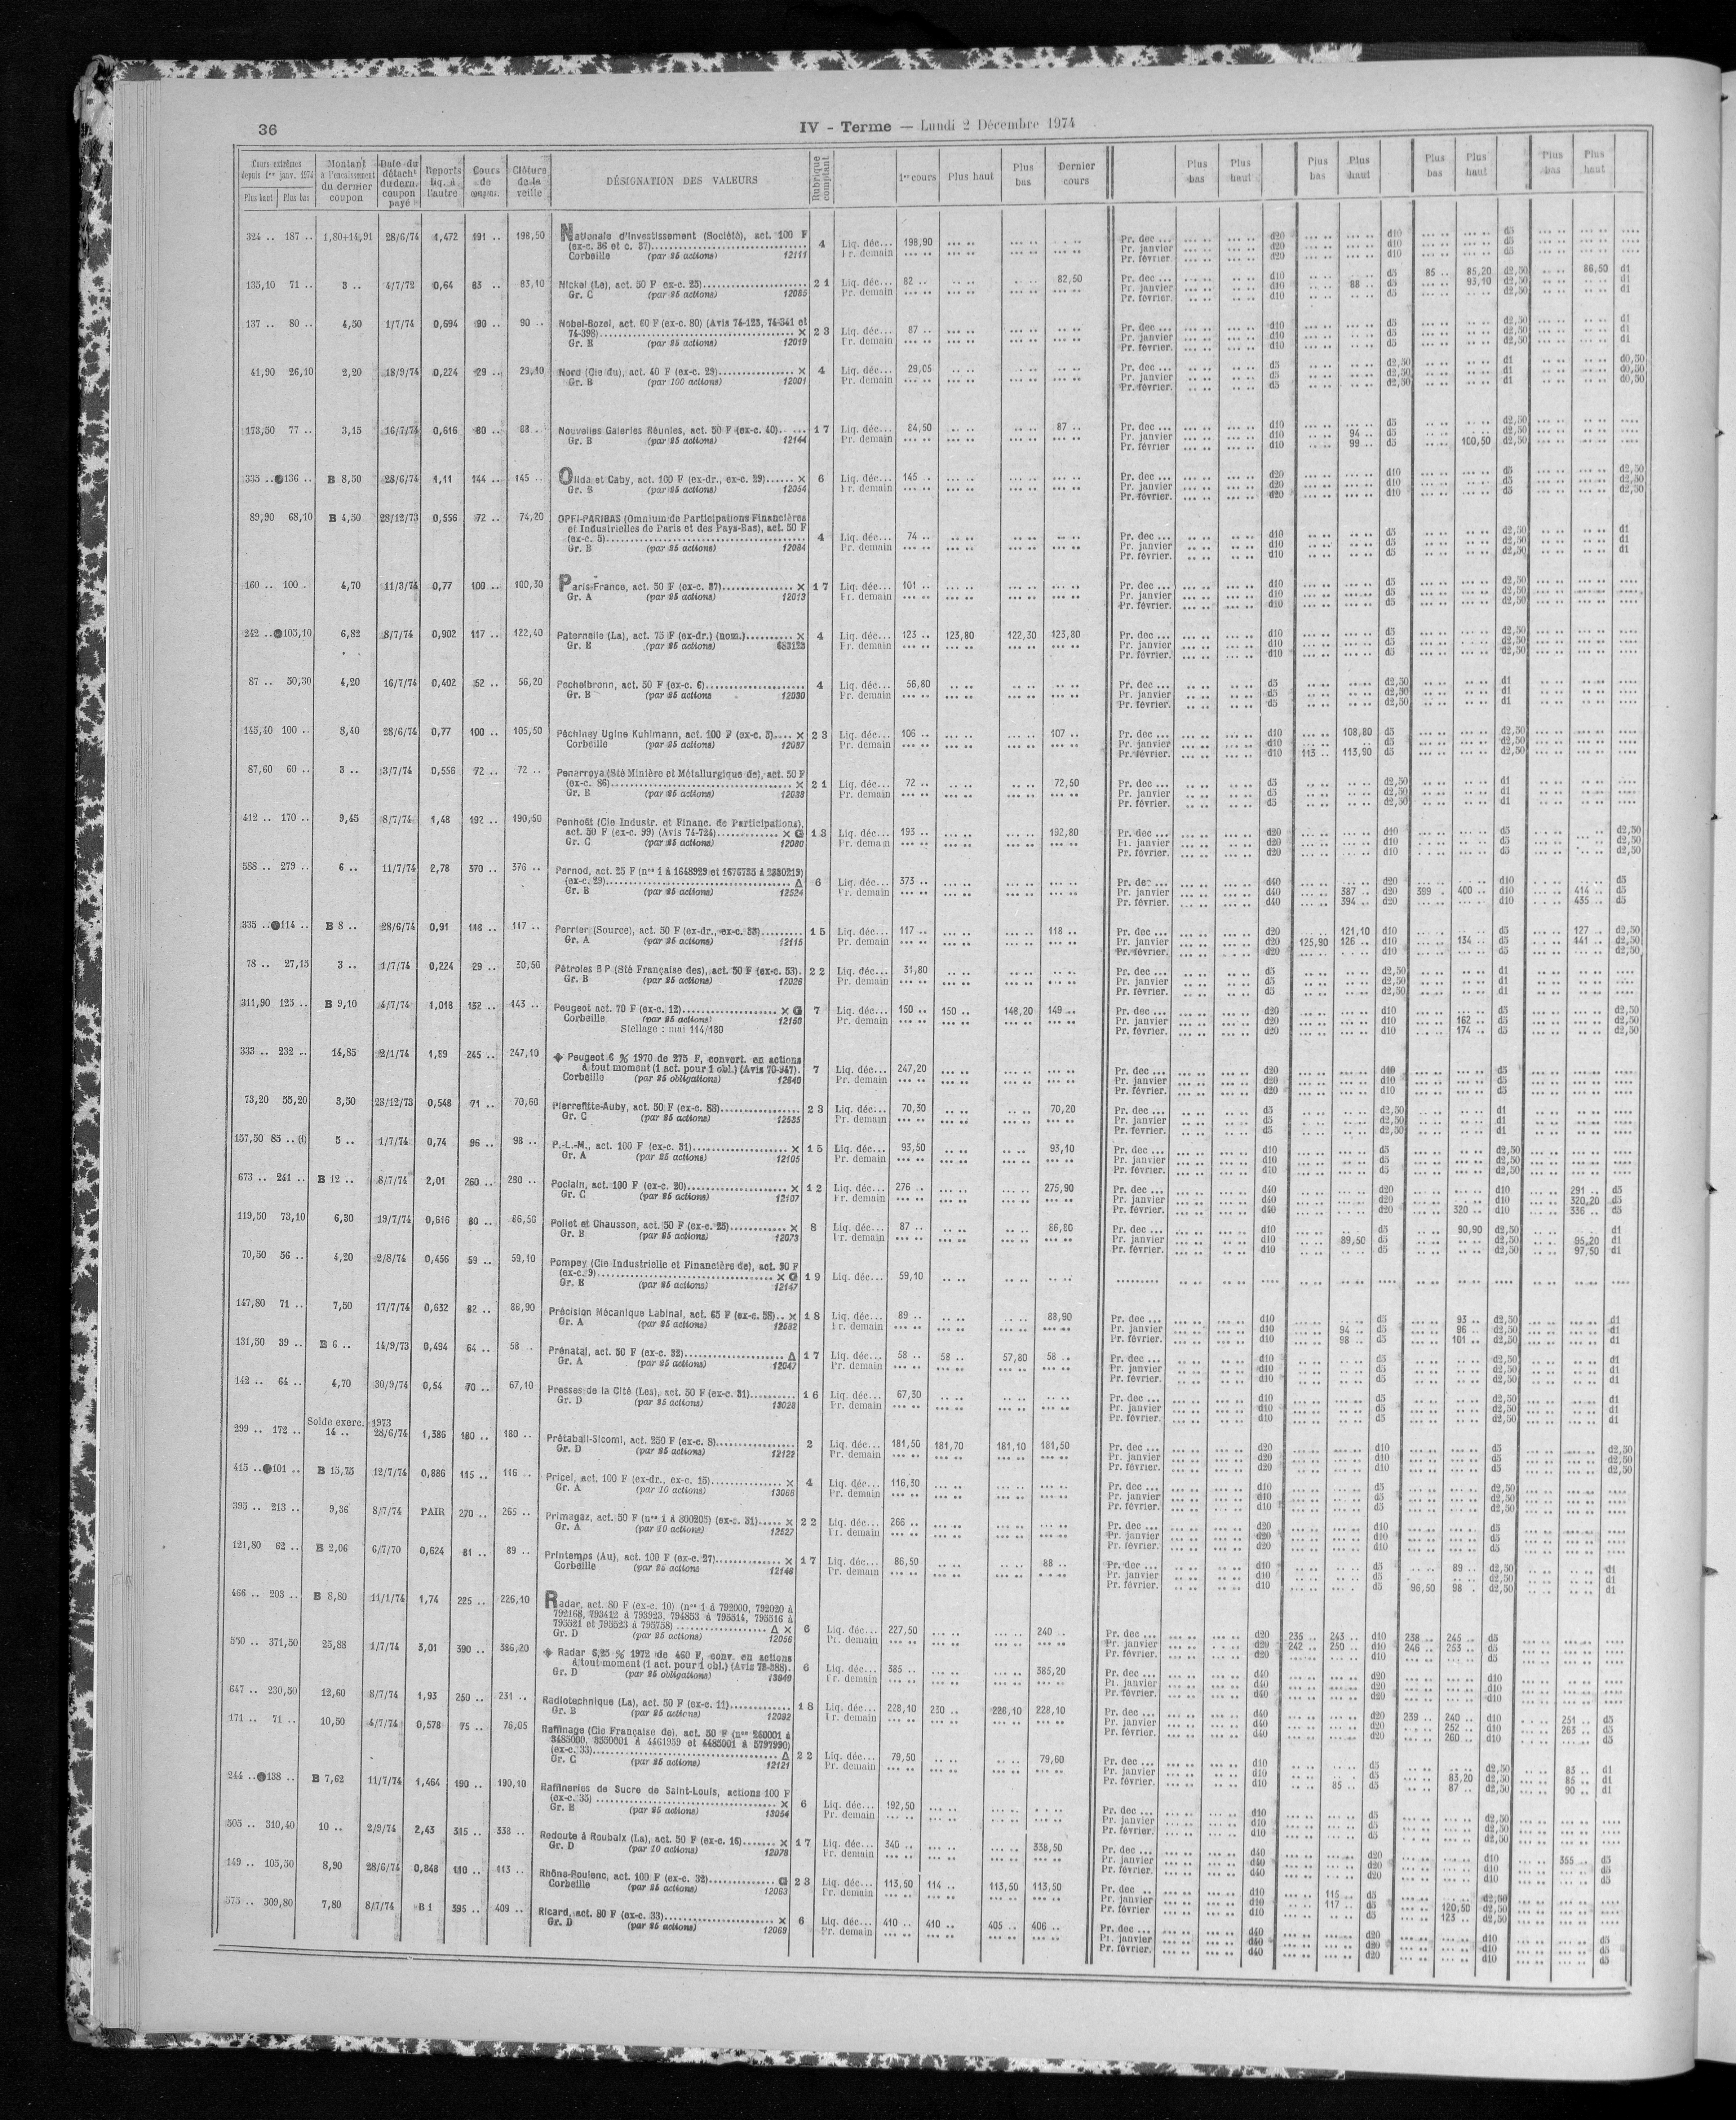 36
IV - Terme — Lundi 2 Décembre 1974
Cours extrêmes depuis 1er janv. 1974 Plus haut Plus bas
Montant à l'encaissement du dernier coupon
Date du détacht du dern. coupon payé
Reports liq. à l'autre
Cours de compens.
Clôture de la veille
DÉSIGNATION DES VALEURS
Rubrique comptant
1er cours Plus haut Plus bas Dernier cours
Plus bas Plus haut Plus bas Plus haut Plus bas Plus haut Plus bas Plus haut
324 .. 187 .. 1,80+14,91 28/6/74 1,472 191 .. 198,50 Nationale d'Investissement (Société), act. 100 F
(ex-c. 36 et c. 37) 4 Liq. déc... 198,90 Pr. dec ... d20 d10 d5
Corbeille (par 25 actions) 12111 Pr. demain Pr. janvier d20 d10 d5
Pr. février. d20 d10 d5
135,10 71 .. 3 .. 4/7/72 0,64 83 .. 83,10 Nickel (Le), act. 50 F ex-c. 25) 21 Liq. déc... 82 .. 82,50 Pr. dec ... d10 d5 85 .. 85,20 d2,50 86,50 d1
Gr. C (par 25 actions) 12085 Pr. demain Pr. janvier d10 88 .. d5 93,10 d2,50 d1
Pr. février. d10 d5 d2,50 d1
137 .. 80 .. 4,50 1/7/74 0,694 90 .. 90 .. Nobel-Bozel, act. 60 F (ex-c. 80) (Avis 74-123, 74-341 et
74-398) × 23 Liq. déc... 87 .. Pr. dec ... d10 d5 d2,50 d1
Gr. E (par 25 actions) 12019 Pr. demain Pr. janvier d10 d5 d2,50 d1
Pr. février. d10 d5 d2,50 d1
41,90 26,10 2,20 18/9/74 0,224 29 .. 29,10 Nord (Cie du), act. 40 F (ex-c. 29) × 4 Liq. déc... 29,05 Pr. dec ... d5 d2,50 d1 d0,50
Gr. B (par 100 actions) 12001 Pr. demain Pr. janvier d5 d2,50 d1 d0,50
Pr. février. d5 d2,50 d1 d0,50
173,50 77 .. 3,15 16/7/74 0,616 80 .. 88 .. Nouvelles Galeries Réunies, act. 50 F (ex-c. 40) 17 Liq. déc... 84,50 87 .. Pr. dec ... d10 d5 d2,50
Gr. B (par 25 actions) 12144 Pr. demain Pr. janvier d10 94 .. d5 d2,50
Pr. février d10 99 .. d5 100,50 d2,50
335 .. ●136 .. B 8,50 28/6/74 1,11 144 .. 145 .. Olida et Caby, act. 100 F (ex-dr., ex-c. 29) × 6 Liq. déc... 145 .. Pr. dec ... d20 d10 d5 d2,50
Gr. B (par 25 actions) 12054 Pr. demain Pr. janvier d20 d10 d5 d2,50
Pr. février. d20 d10 d5 d2,50
89,90 68,10 B 4,50 28/12/73 0,556 72 .. 74,20 OPFI-PARIBAS (Omnium de Participations Financières
et Industrielles de Paris et des Pays-Bas), act. 50 F
(ex-c. 5) 4 Liq. déc... 74 .. Pr. dec ... d10 d5 d2,50 d1
Gr. B (par 25 actions) 12084 Pr. demain Pr. janvier d10 d5 d2,50 d1
Pr. février. d10 d5 d2,50 d1
160 .. 100 .. 4,70 11/3/74 0,77 100 .. 100,30 Paris-France, act. 50 F (ex-c. 37) × 17 Liq. déc... 101 .. Pr. dec ... d10 d5 d2,50
Gr. A (par 25 actions) 12013 Pr. demain Pr. janvier d10 d5 d2,50
Pr. février. d10 d5 d2,50
242 .. ●103,10 6,82 8/7/74 0,902 117 .. 122,40 Paternelle (La), act. 75 F (ex-dr.) (nom.) × 4 Liq. déc... 123 .. 123,80 122,30 123,80 Pr. dec ... d10 d5 d2,50
Gr. E (par 25 actions) 683123 Pr. demain Pr. janvier d10 d5 d2,50
Pr. février. d10 d5 d2,50
87 .. 50,30 4,20 16/7/74 0,402 52 .. 56,20 Pechelbronn, act. 50 F (ex-c. 6) 4 Liq. déc... 56,80 Pr. dec ... d5 d2,50 d1
Gr. B (par 25 actions) 12030 Pr. demain Pr. janvier d5 d2,50 d1
Pr. février. d5 d2,50 d1
145,40 100 .. 8,40 28/6/74 0,77 100 .. 105,50 Péchiney Ugine Kuhlmann, act. 100 F (ex-c. 3) × 23 Liq. déc... 106 .. 107 .. Pr. dec ... d10 108,80 d5 d2,50
Corbeille (par 25 actions) 12087 Pr. demain Pr. janvier d10 d5 d2,50
Pr. février. d10 113 .. 113,90 d5 d2,50
87,60 60 .. 3 .. 3/7/74 0,556 72 .. 72 .. Penarroya (Sté Minière et Métallurgique de), act. 50 F
(ex-c. 86) × 21 Liq. déc... 72 .. 72,50 Pr. dec ... d5 d2,50 d1
Gr. B (par 25 actions) 12038 Pr. demain Pr. janvier d5 d2,50 d1
Pr. février. d5 d2,50 d1
412 .. 170 .. 9,45 8/7/74 1,48 192 .. 190,50 Penhoët (Cie Industr. et Financ. de Participations),
act. 50 F (ex-c. 99) (Avis 74-724) × G 13 Liq. déc... 193 .. 192,80 Pr. dec ... d20 d10 d5 d2,50
Gr. C (par 25 actions) 12080 Pr. demain Pr. janvier d20 d10 d5 d2,50
Pr. février. d20 d10 d5 d2,50
588 .. 279 .. 6 .. 11/7/74 2,78 370 .. 376 .. Pernod, act. 25 F (nos 1 à 1648929 et 1676735 à 2880219)
(ex-c. 29) Δ 6 Liq. déc... 373 .. Pr. dec ... d40 d20 d10 d5
Gr. B (par 25 actions) 12524 Pr. demain Pr. janvier d40 387 .. d20 399 .. 400 .. d10 414 .. d5
Pr. février. d40 394 .. d20 d10 435 .. d5
335 .. ●114 .. B 8 .. 28/6/74 0,91 118 .. 117 .. Perrier (Source), act. 50 F (ex-dr., ex-c. 33) 15 Liq. déc... 117 .. 118 .. Pr. dec ... d20 121,10 d10 d5 127 .. d2,50
Gr. A (par 25 actions) 12115 Pr. demain Pr. janvier d20 125,90 126 .. d10 134 .. d5 141 .. d2,50
Pr. février. d20 d10 d5 d2,50
78 .. 27,15 3 .. 1/7/74 0,224 29 .. 30,50 Pétroles B P (Sté Française des), act. 50 F (ex-c. 53) 22 Liq. déc... 31,80 Pr. dec ... d5 d2,50 d1
Gr. B (par 25 actions) 12026 Pr. demain Pr. janvier d5 d2,50 d1
Pr. février. d5 d2,50 d1
311,90 125 .. B 9,10 4/7/74 1,018 132 .. 143 .. Peugeot act. 70 F (ex-c. 12) × G 7 Liq. déc... 150 .. 150 .. 148,20 149 .. Pr. dec ... d20 d10 d5 d2,50
Corbeille (par 25 actions) 12160 Pr. demain Pr. janvier d20 d10 162 .. d5 d2,50
Stellage : mai 114/180 Pr. février. d20 d10 174 .. d5 d2,50
333 .. 232 .. 14,85 2/1/74 1,89 245 .. 247,10 ◆ Peugeot 6 % 1970 de 275 F, convert. en actions
à tout moment (1 act. pour 1 obl.) (Avis 70-947). 7 Liq. déc... 247,20 Pr. dec ... d20 d10 d5
Corbeille (par 25 obligations) 12640 Pr. demain Pr. janvier d20 d10 d5
Pr. février. d20 d10 d5
73,20 55,20 3,50 28/12/73 0,548 71 .. 70,60 Pierrefitte-Auby, act. 50 F (ex-c. 88) 23 Liq. déc... 70,30 70,20 Pr. dec ... d5 d2,50 d1
Gr. C (par 25 actions) 12535 Pr. demain Pr. janvier d5 d2,50 d1
Pr. février. d5 d2,50 d1
157,50 85 .. (1) 5 .. 1/7/74 0,74 96 .. 98 .. P.-L.-M., act. 100 F (ex-c. 31) × 15 Liq. déc... 93,50 93,10 Pr. dec ... d10 d5 d2,50
Gr. A (par 25 actions) 12105 Pr. demain Pr. janvier d10 d5 d2,50
Pr. février. d10 d5 d2,50
673 .. 241 .. B 12 .. 8/7/74 2,01 260 .. 280 .. Poclain, act. 100 F (ex-c. 20) × 12 Liq. déc... 276 .. 275,90 Pr. dec ... d40 d20 d10 291 .. d5
Gr. C (par 25 actions) 12107 Pr. demain Pr. janvier d40 d20 d10 320,20 d5
Pr. février. d40 d20 320 .. d10 336 .. d5
119,50 73,10 6,30 19/7/74 0,616 80 .. 86,50 Poliet et Chausson, act. 50 F (ex-c. 25) × 8 Liq. déc... 87 .. 86,80 Pr. dec ... d10 d5 90,90 d2,50 d1
Gr. B (par 25 actions) 12073 Pr. demain Pr. janvier d10 89,50 d5 d2,50 95,20 d1
Pr. février. d10 d5 d2,50 97,50 d1
70,50 56 .. 4,20 2/8/74 0,456 59 .. 59,10 Pompey (Cie Industrielle et Financière de), act. 90 F
(ex-c. 9) × G 19 Liq. déc... 59,10
Gr. E (par 25 actions) 12147
147,80 71 .. 7,50 17/7/74 0,632 82 .. 88,90 Précision Mécanique Labinal, act. 65 F (ex-c. 58) × 18 Liq. déc... 89 .. 88,90 Pr. dec ... d10 d5 93 .. d2,50 d1
Gr. A (par 25 actions) 12582 Pr. demain Pr. janvier d10 94 .. d5 96 .. d2,50 d1
Pr. février. d10 98 .. d5 101 .. d2,50 d1
131,50 39 .. B 6 .. 14/9/73 0,494 64 .. 58 .. Prénatal, act. 50 F (ex-c. 32) Δ 17 Liq. déc... 58 .. 58 .. 57,80 58 .. Pr. dec ... d10 d5 d2,50 d1
Gr. A (par 25 actions) 12047 Pr. demain Pr. janvier d10 d5 d2,50 d1
Pr. février. d10 d5 d2,50 d1
142 .. 64 .. 4,70 30/9/74 0,54 70 .. 67,10 Presses de la Cité (Les), act. 50 F (ex-c. 31) 16 Liq. déc... 67,30 Pr. dec ... d10 d5 d2,50 d1
Gr. D (par 25 actions) 13028 Pr. demain Pr. janvier d10 d5 d2,50 d1
Pr. février. d10 d5 d2,50 d1
Solde exerc. 1973
299 .. 172 .. 14 .. 28/6/74 1,386 180 .. 180 .. Prétabail-Sicomi, act. 250 F (ex-c. 8) 2 Liq. déc... 181,50 181,70 181,10 181,50 Pr. dec ... d20 d10 d5 d2,50
Gr. D (par 25 actions) 12122 Pr. demain Pr. janvier d20 d10 d5 d2,50
Pr. février. d20 d10 d5 d2,50
415 .. ●101 .. B 15,75 12/7/74 0,886 115 .. 116 .. Pricel, act. 100 F (ex-dr., ex-c. 15) × 4 Liq. déc... 116,30 Pr. dec ... d10 d5 d2,50
Gr. A (par 10 actions) 13066 Pr. demain Pr. janvier d10 d5 d2,50
Pr. février. d10 d5 d2,50
395 .. 213 .. 9,36 8/7/74 PAIR 270 .. 265 .. Primagaz, act. 50 F (nos 1 à 800205) (ex-c. 31) × 22 Liq. déc... 266 .. Pr. dec ... d20 d10 d5
Gr. A (par 10 actions) 12527 Pr. demain Pr. janvier d20 d10 d5
Pr. février. d20 d10 d5
121,80 62 .. B 2,06 6/7/70 0,624 81 .. 89 .. Printemps (Au), act. 100 F (ex-c. 27) × 17 Liq. déc... 86,50 88 .. Pr. dec ... d10 d5 89 .. d2,50 d1
Corbeille (par 25 actions 12146 Pr. demain Pr. janvier d10 d5 d2,50 d1
Pr. février. d10 d5 96,50 98 .. d2,50 d1
466 .. 203 .. B 8,80 11/1/74 1,74 225 .. 226,10 Radar, act. 80 F (ex-c. 10) (nos 1 à 792000, 792020 à
792168, 793412 à 793923, 794853 à 795514, 795516 à
795521 et 795523 à 795758) Δ × 6 Liq. déc... 227,50 240 .. Pr. dec ... d20 235 .. 243 .. d10 238 .. 245 .. d5
Gr. D (par 25 actions) 12056 Pr. demain Pr. janvier d20 242 .. 250 .. d10 246 .. 253 .. d5
Pr. février. d20 d10 d5
550 .. 371,50 25,88 1/7/74 3,01 390 .. 386,20 ◆ Radar 6,25 % 1972 de 460 F, conv. en actions
à tout moment (1 act. pour 1 obl.) (Avis 73-388). 6 Liq. déc... 385 .. 385,20 Pr. dec ... d40 d20 d10
Gr. D (par 25 obligations) 13649 Pr. demain Pr. janvier d40 d20 d10
Pr. février. d40 d20 d10
647 .. 230,50 12,60 8/7/74 1,93 250 .. 231 .. Radiotechnique (La), act. 50 F (ex-c. 11) 18 Liq. déc... 228,10 230 .. 226,10 228,10 Pr. dec ... d40 d20 239 .. 240 .. d10 251 .. d5
Gr. B (par 25 actions) 12092 Pr. demain Pr. janvier d40 d20 252 .. d10 263 .. d5
Pr. février. d40 d20 260 .. d10 d5
171 .. 71 .. 10,50 4/7/74 0,578 75 .. 76,05 Raffinage (Cie Française de), act. 50 F (nos 260001 à
3485000, 3550001 à 4461959 et 4485001 à 5797990)
(ex-c. 33) Δ 22 Liq. déc... 79,50 79,60 Pr. dec ... d10 d5 d2,50 83 .. d1
Gr. C (par 25 actions) 12121 Pr. demain Pr. janvier d10 d5 83,20 d2,50 85 .. d1
Pr. février. d10 85 .. d5 87 .. d2,50 90 .. d1
244 .. ●138 .. B 7,62 11/7/74 1,464 190 .. 190,10 Raffineries de Sucre de Saint-Louis, actions 100 F
(ex-c. 35) × 6 Liq. déc... 192,50 Pr. dec ... d10 d5 d2,50
Gr. E (par 25 actions) 13054 Pr. demain Pr. janvier d10 d5 d2,50
Pr. février. d10 d5 d2,50
505 .. 310,40 10 .. 2/9/74 2,43 315 .. 338 .. Redoute à Roubaix (La), act. 50 F (ex-c. 16) × 17 Liq. déc... 340 .. 338,50 Pr. dec ... d40 d20 d10 355 .. d5
Gr. D (par 10 actions) 12078 Pr. demain Pr. janvier d40 d20 d10 d5
Pr. février. d40 d20 d10 d5
149 .. 103,50 8,90 28/6/74 0,848 110 .. 113 .. Rhône-Poulenc, act. 100 F (ex-c. 32) G 23 Liq. déc... 113,50 114 .. 113,50 113,50 Pr. dec .. d10 115 .. d5 d2,50
Corbeille (par 25 actions) 12063 Pr. demain Pr. janvier d10 117 .. d5 120,50 d2,50
Pr. février d10 d5 123 .. d2,50
575 .. 309,80 7,80 8/7/74 B 1 395 .. 409 .. Ricard, act. 80 F (ex-c. 33) × 6 Liq. déc... 410 .. 410 .. 405 .. 406 .. Pr. dec ... d40 d20 d10 d5
Gr. D (par 25 actions) 12069 Pr. demain Pr. janvier d40 d20 d10 d5
Pr. février. d40 d20 d10 d5